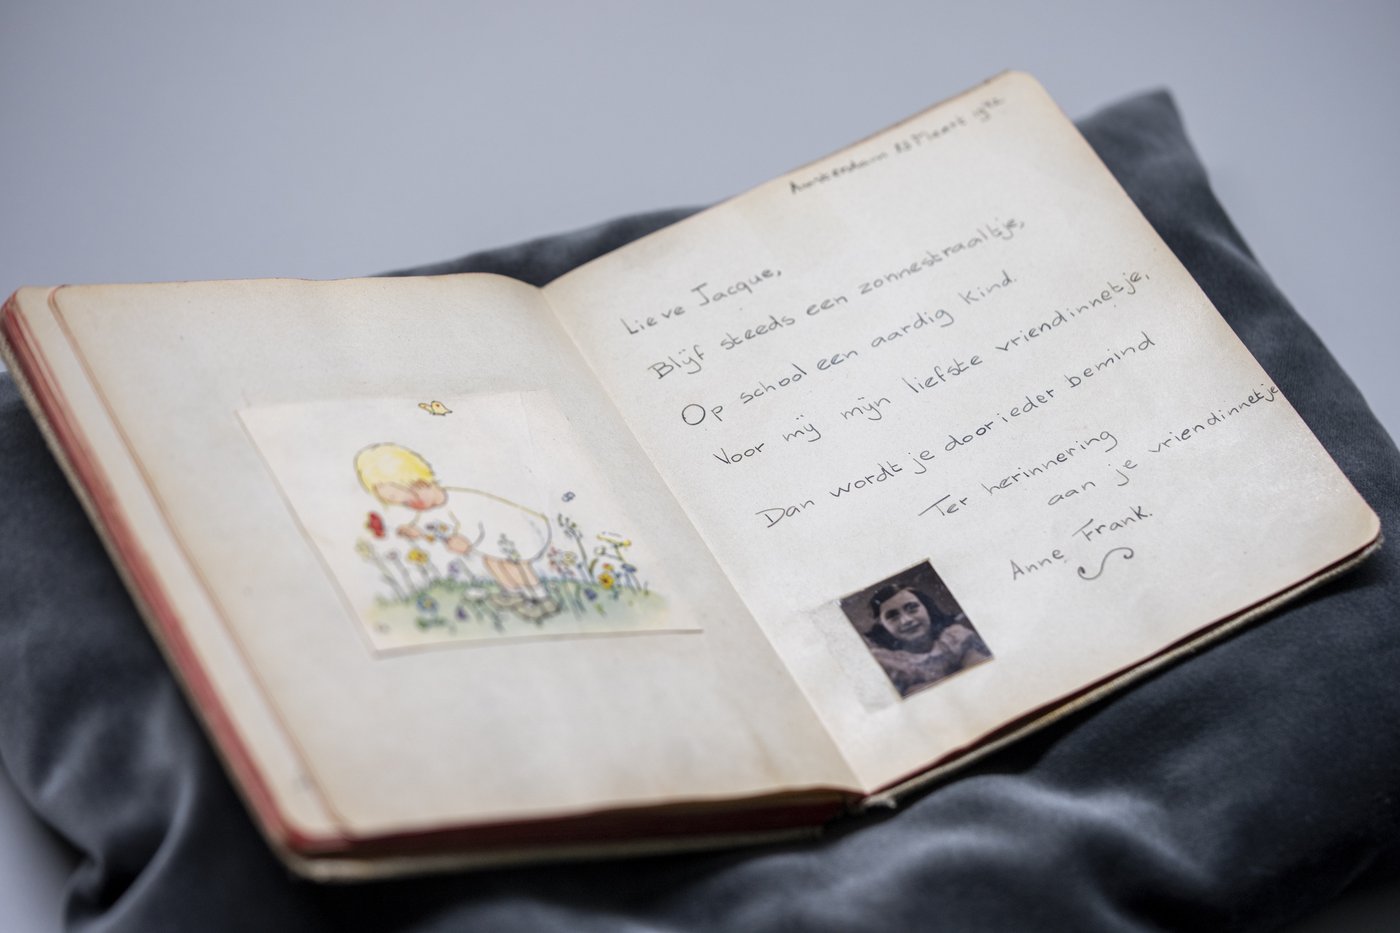 Amsterdam 23 Maart 1942
Lieve Jacque,
Blijf steeds een zonnestraaltje,
Op school een aardig kind.
Voor mij mijn liefste vriendinnetje,
Dan wordt je door ieder bemind
Ter herinnering
aan je vriendinnetje
Anne Frank.